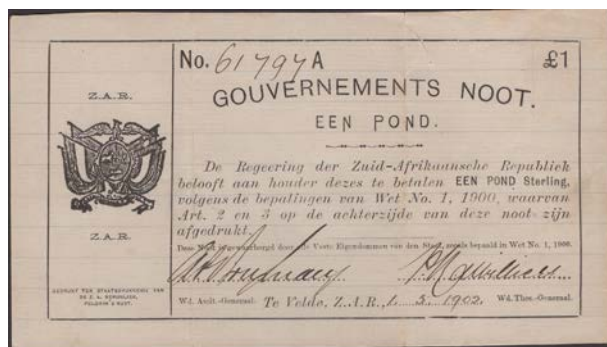 Z.A.R.
Z.A.R.
GEDRUKT TER STAATSDRUKKERIJ VAN
DE Z. A. REPUBLIEK,
PELGRIM'S RUST.
No. 61797 A £1
GOUVERNEMENTS NOOT.
EEN POND.
De Regeering der Zuid-Afrikaansche Republiek
belooft aan houder dezes te betalen EEN POND Sterling,
volgens de bepalingen van Wet No. 1, 1900, waarvan
Art. 2 en 3 op de achterzijde van deze noot zijn
afgedrukt.
Deze Noot is gewaarborgd door alle Vaste Eigendommen van den Staat, zooals bepaald in Wet No. 1, 1900.
Wd. Audt.-Generaal. Te Velde, Z.A.R., 1. 5. 1902. Wd. Thes.-Generaal.